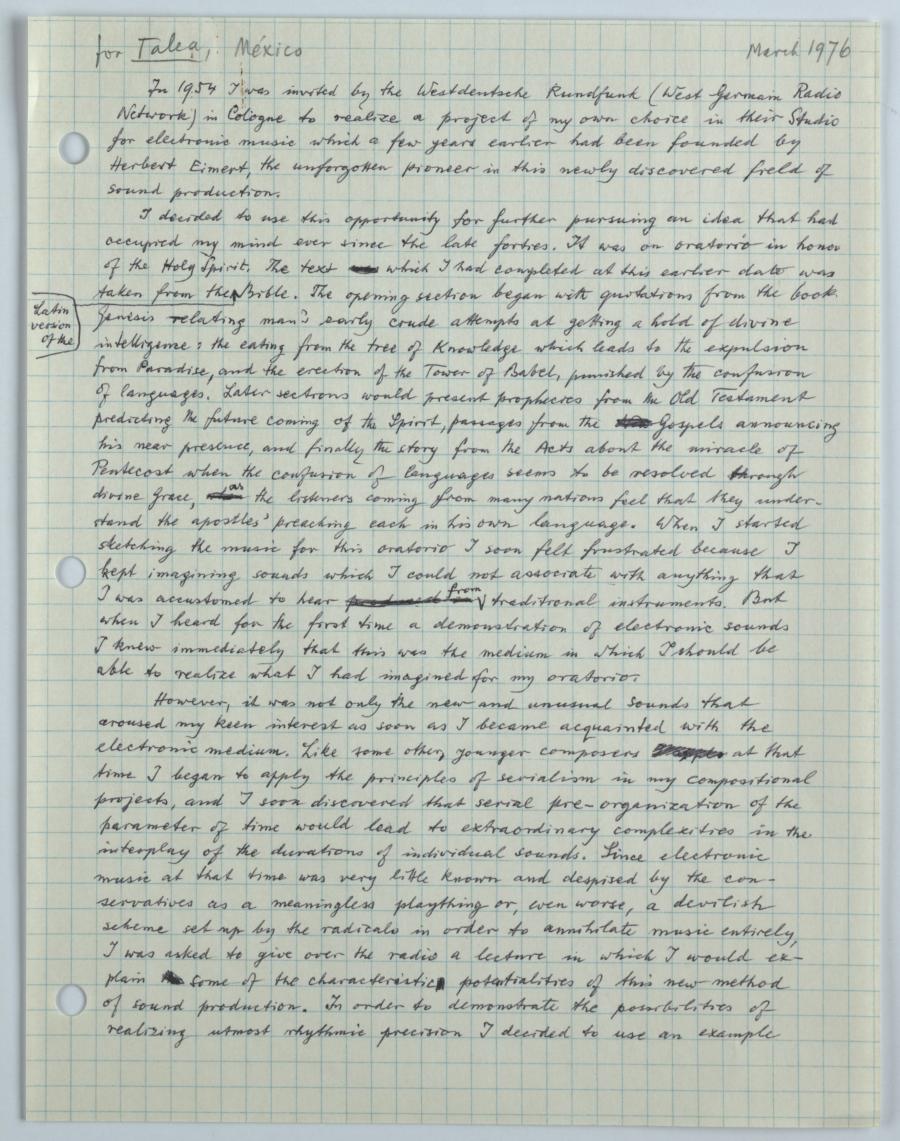 for Talea, México March 1976
In 1954 I was invited by the Westdeutsche Rundfunk (West German Radio
Network) in Cologne to realize a project of my own choice in their Studio
for electronic music which a few years earlier had been founded by
Herbert Eimert, the unforgotten pioneer in this newly discovered field of
sound production.
I decided to use this opportunity for further pursuing an idea that had
occupied my mind ever since the late forties. It was an oratorio in honor
of the Holy Spirit. The text which I had completed at this earlier date was
taken from the Latin version of the Bible. The opening section began with quotations from the book
Genesis relating man's early crude attempts at getting a hold of divine
intelligence: the eating from the tree of Knowledge which leads to the expulsion
from Paradise, and the erection of the Tower of Babel, punished by the confusion
of languages. Later sections would present prophecies from the Old Testament
predicting the future coming of the Spirit, passages from the Gospels announcing
his near presence, and finally the story from the Acts about the miracle of
Pentecost when the confusion of languages seems to be resolved through
divine Grace, as the listeners coming from many nations feel that they under-
stand the apostles' preaching each in his own language. When I started
sketching the music for this oratorio I soon felt frustrated because I
kept imagining sounds which I could not associate with anything that
I was accustomed to hear from traditional instruments. But
when I heard for the first time a demonstration of electronic sounds
I knew immediately that this was the medium in which I should be
able to realize what I had imagined for my oratorio.
However, it was not only the new and unusual sounds that
aroused my keen interest as soon as I became acquainted with the
electronic medium. Like some other, younger composers at that
time I began to apply the principles of serialism in my compositional
projects, and I soon discovered that serial pre-organization of the
parameter of time would lead to extraordinary complexities in the
interplay of the durations of individual sounds. Since electronic
music at that time was very little known and despised by the con-
servatives as a meaningless plaything or, even worse, a devilish
scheme set up by the radicals in order to annihilate music entirely,
I was asked to give over the radio a lecture in which I would ex-
plain some of the characteristic potentialities of this new method
of sound production. In order to demonstrate the possibilities of
realizing utmost rhythmic precision I decided to use an example